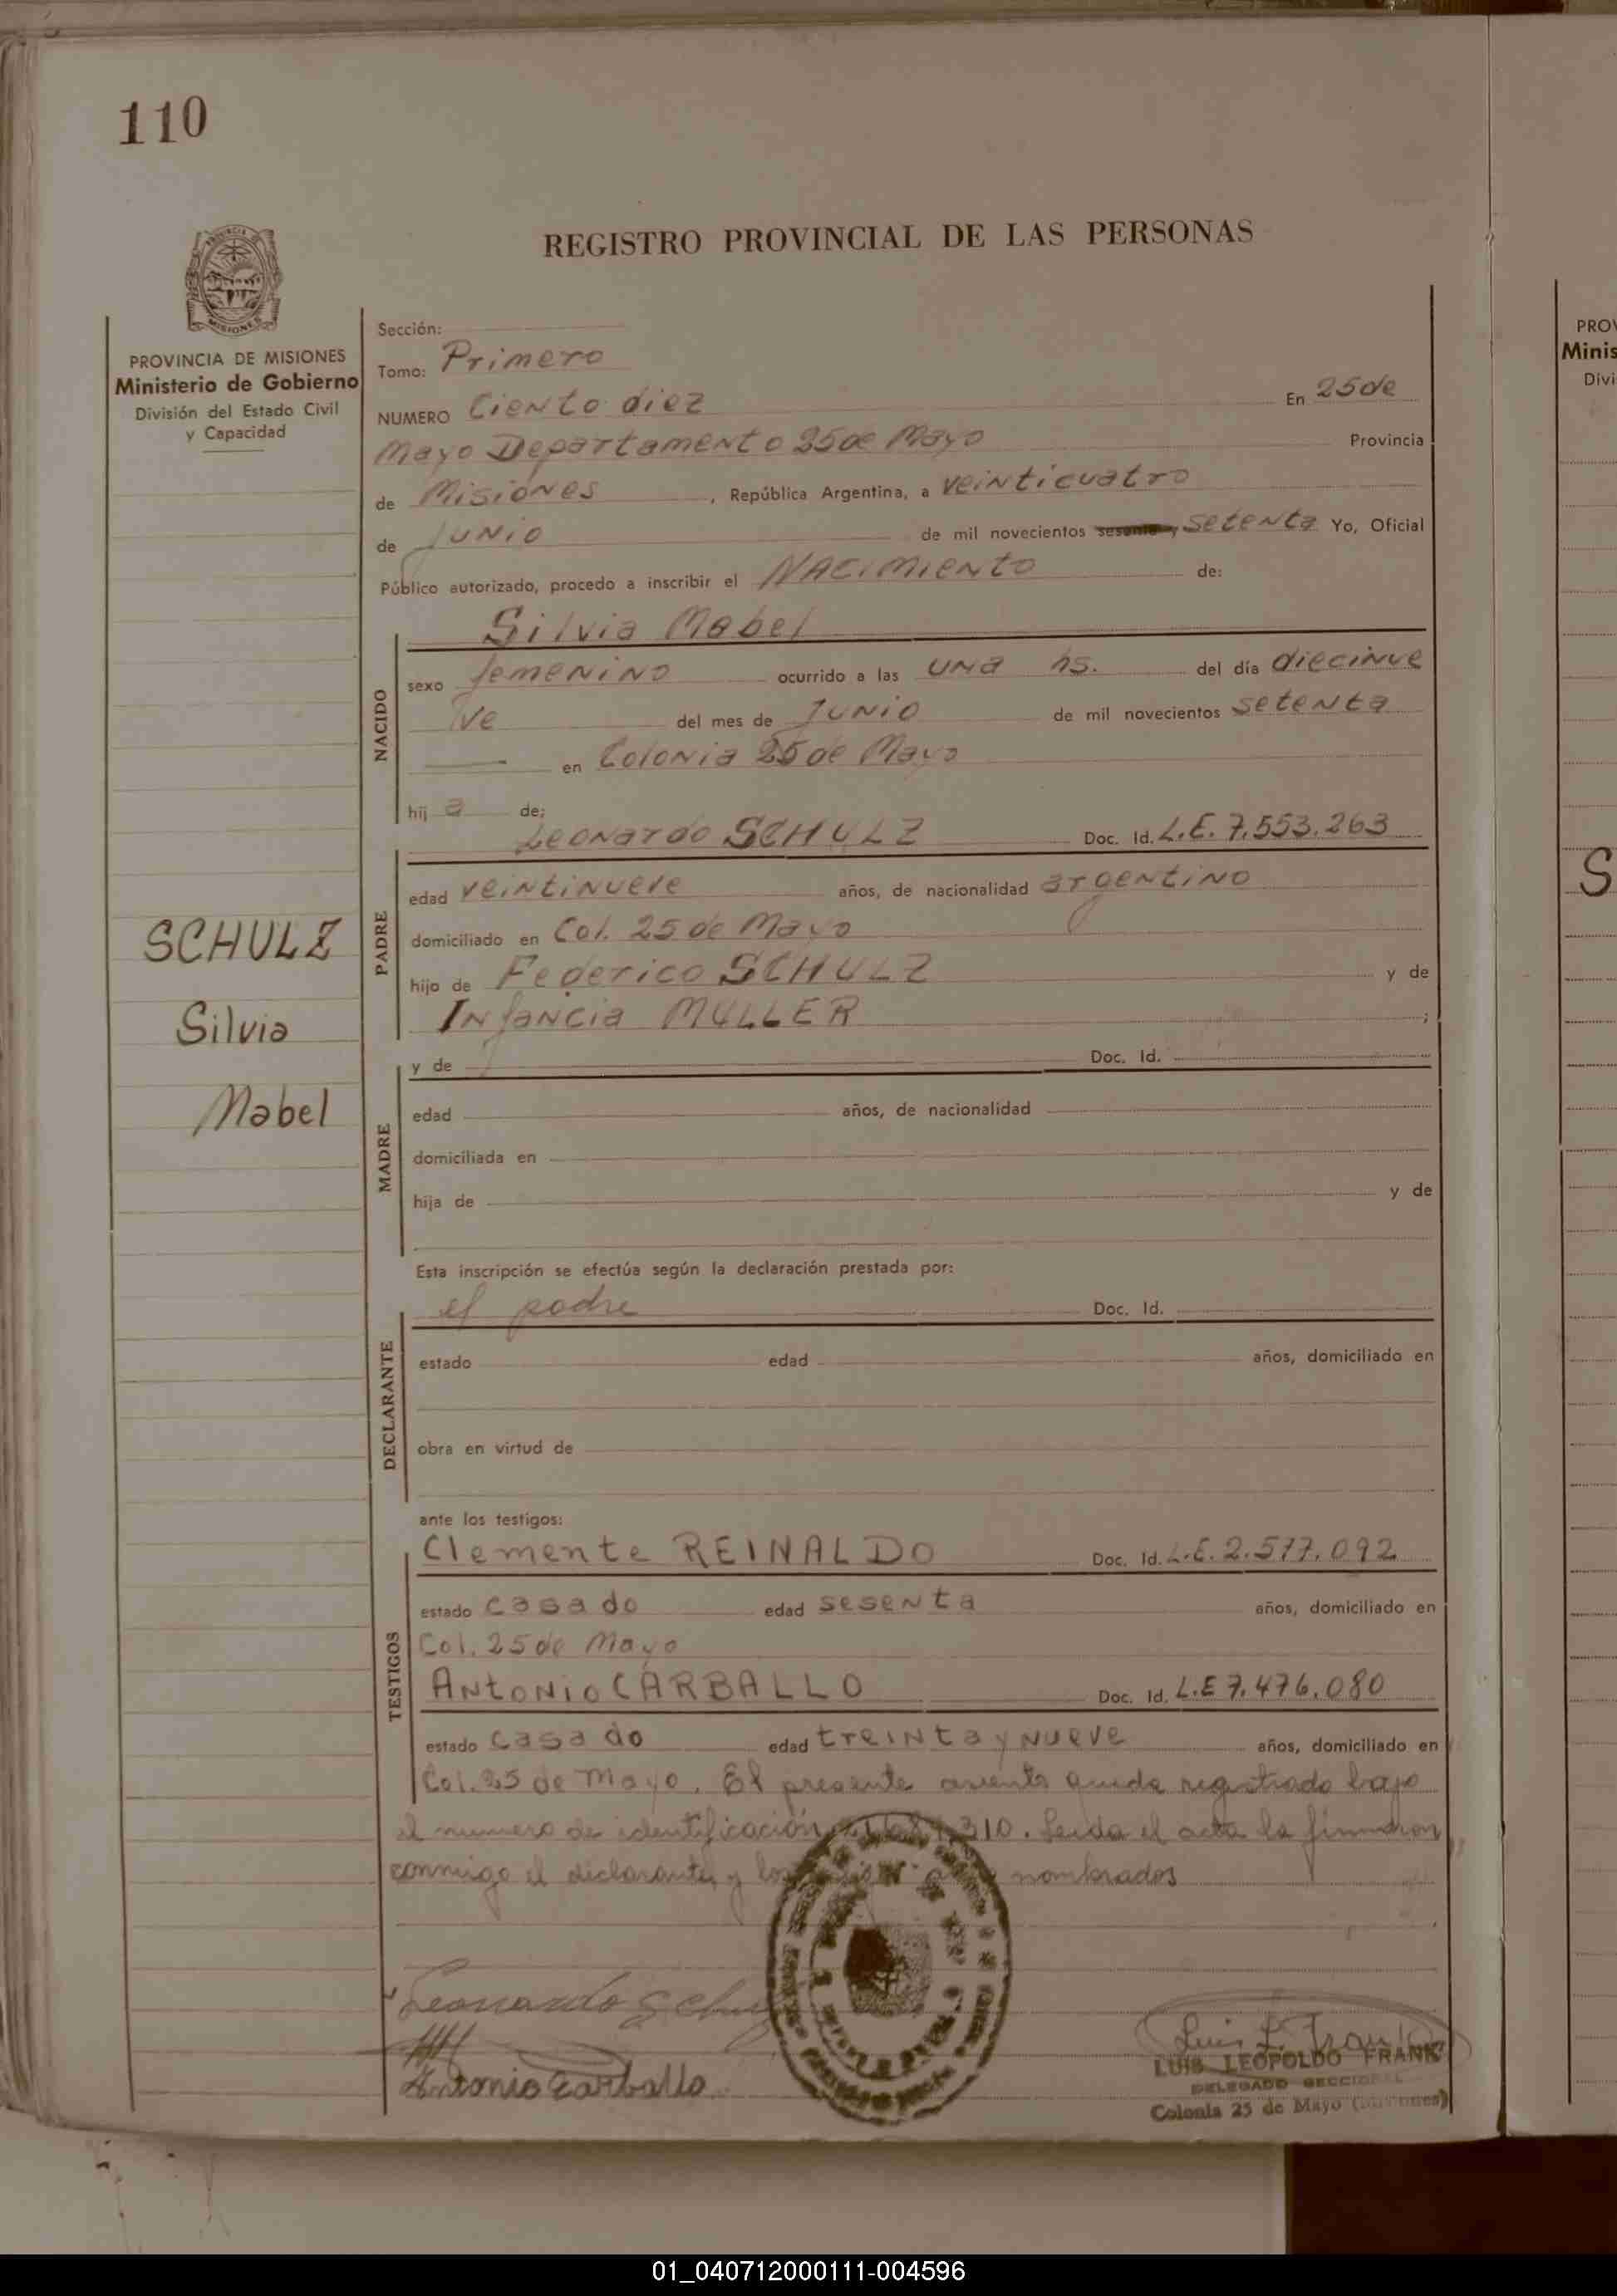 110
REGISTRO PROVINCIAL DE LAS PERSONAS
PROVINCIA DE MISIONES
Ministerio de Gobierno
División del Estado Civil
y Capacidad
Sección:
Tomo: Primero
NUMERO Ciento diez En 25 de
Mayo Departamento 25 de Mayo Provincia
de Misiones, República Argentina, a veinticuatro
de Junio de mil novecientos sesenta y setenta Yo, Oficial
Público autorizado, procedo a inscribir el NACIMIENTO de:
Silvia Mabel
NACIDO
sexo femenino ocurrido a las una hs. del día diecinue
ve del mes de Junio de mil novecientos setenta
en Colonia 25 de Mayo
hij a de;
Leonardo SCHULZ Doc. Id. L.E. 7.553.263
PADRE
edad veintinueve años, de nacionalidad argentino
domiciliado en Col. 25 de Mayo
hijo de Federico SCHULZ y de
Infancia MULLER ;
SCHULZ
Silvia
Mabel
MADRE
y de Doc. Id.
edad años, de nacionalidad
domiciliada en
hija de y de
Esta inscripción se efectúa según la declaración prestada por:
el padre Doc. Id.
DECLARANTE
estado edad años, domiciliado en
obra en virtud de
ante los testigos:
Clemente REINALDO Doc. Id. L.E. 2.577.092
TESTIGOS
estado casado edad sesenta años, domiciliado en
Col. 25 de Mayo
Antonio CARBALLO Doc. Id. L.E 7.476.080
estado casado edad treinta y nueve años, domiciliado en
Col. 25 de Mayo. El presente asiento queda registrado bajo
el numero de identificación 310. Leida el acta la firmaron
conmigo el declarante y los nombrados
Leonardo Schulz
Antonio Carballo
Luis L. Frank
LUIS LEOPOLDO FRANK
DELEGADO SECCIONAL
Colonia 25 de Mayo (Misiones)
PROV
Minis
Divi
S
01_040712000111-004596